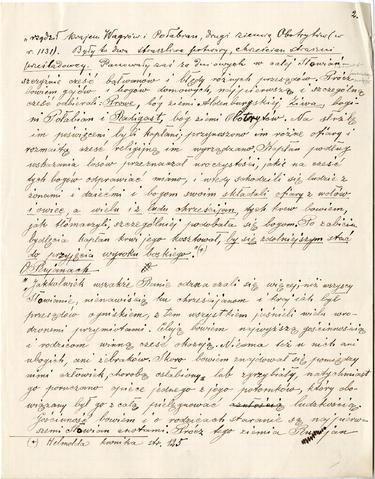 2.
"rządzł krajem Wagrów i Połabian, drugi ziemią Obotrytów (w
r. 1131). Były to dwa straszliwe potwory, chrześcian straszni
prześladowcy. Panowały zaś za dni onych w całej Słowiań-
szczyźnie cześć bałwanów i błędy różnych przesądów. Prócz
bowiem gajów i bogów domowych, najpierwszą i szczególną
cześć odbierali: Prowe, bóg ziemi Aldenburgskiej, Żiwa, bogi-
ni Połabian i Radigast, bóg ziemi Obotrytów. Na służbę
im poświęceni byli kapłani, przynoszono im różne ofiary i
rozmaitą cześć religijną im wyrządzano. Kapłan podług
wskazania losów przeznaczał uroczystości, jakie na cześć
tych bogów odprawiać miano, i wtedy schodzili się ludzie z
żonami i dziećmi i bogom swoim składali ofiary z wołów
i owiec, a wielu i z ludzi chrześcijan, tych krew bowiem,
jak tłómaczyli, szczególniej podobała się bogom. Po zabiciu
bydlęcia kapłan krwi jego kosztował, by się zdolniejszym stać
do przyjęcia wyroku boskiego." (*)
O Rujanach
"Jakkolwiek wszakże Ranie odznaczali się więcej niż wszyscy
Słowianie, nienawiścią ku chrześcijanom i żywiej ich był
przesądów ogniskiem, z tem wszystkiem jaśnieli wielu wro-
dzonemi przymiotami. Mają bowiem najwyższą gościnność
i rodzicom winną cześć okazują. Niema też u nich ani
ubogich, ani żebraków. Skoro bowiem znajdował się pomiędzy
nimi człowiek, chorobą osłabiony lub zgrzybiały, natychmiast
go poruczano opiece jednego z jego potomków, który obo-
wiązany był go z całą pielęgnować ludzkością.
Gościnność bowiem i o rodzicach staranie są najpierw-
szemi Słowian cnotami. Prócz tego ziemia Rujan
(*) Helmolda kronika str. 125